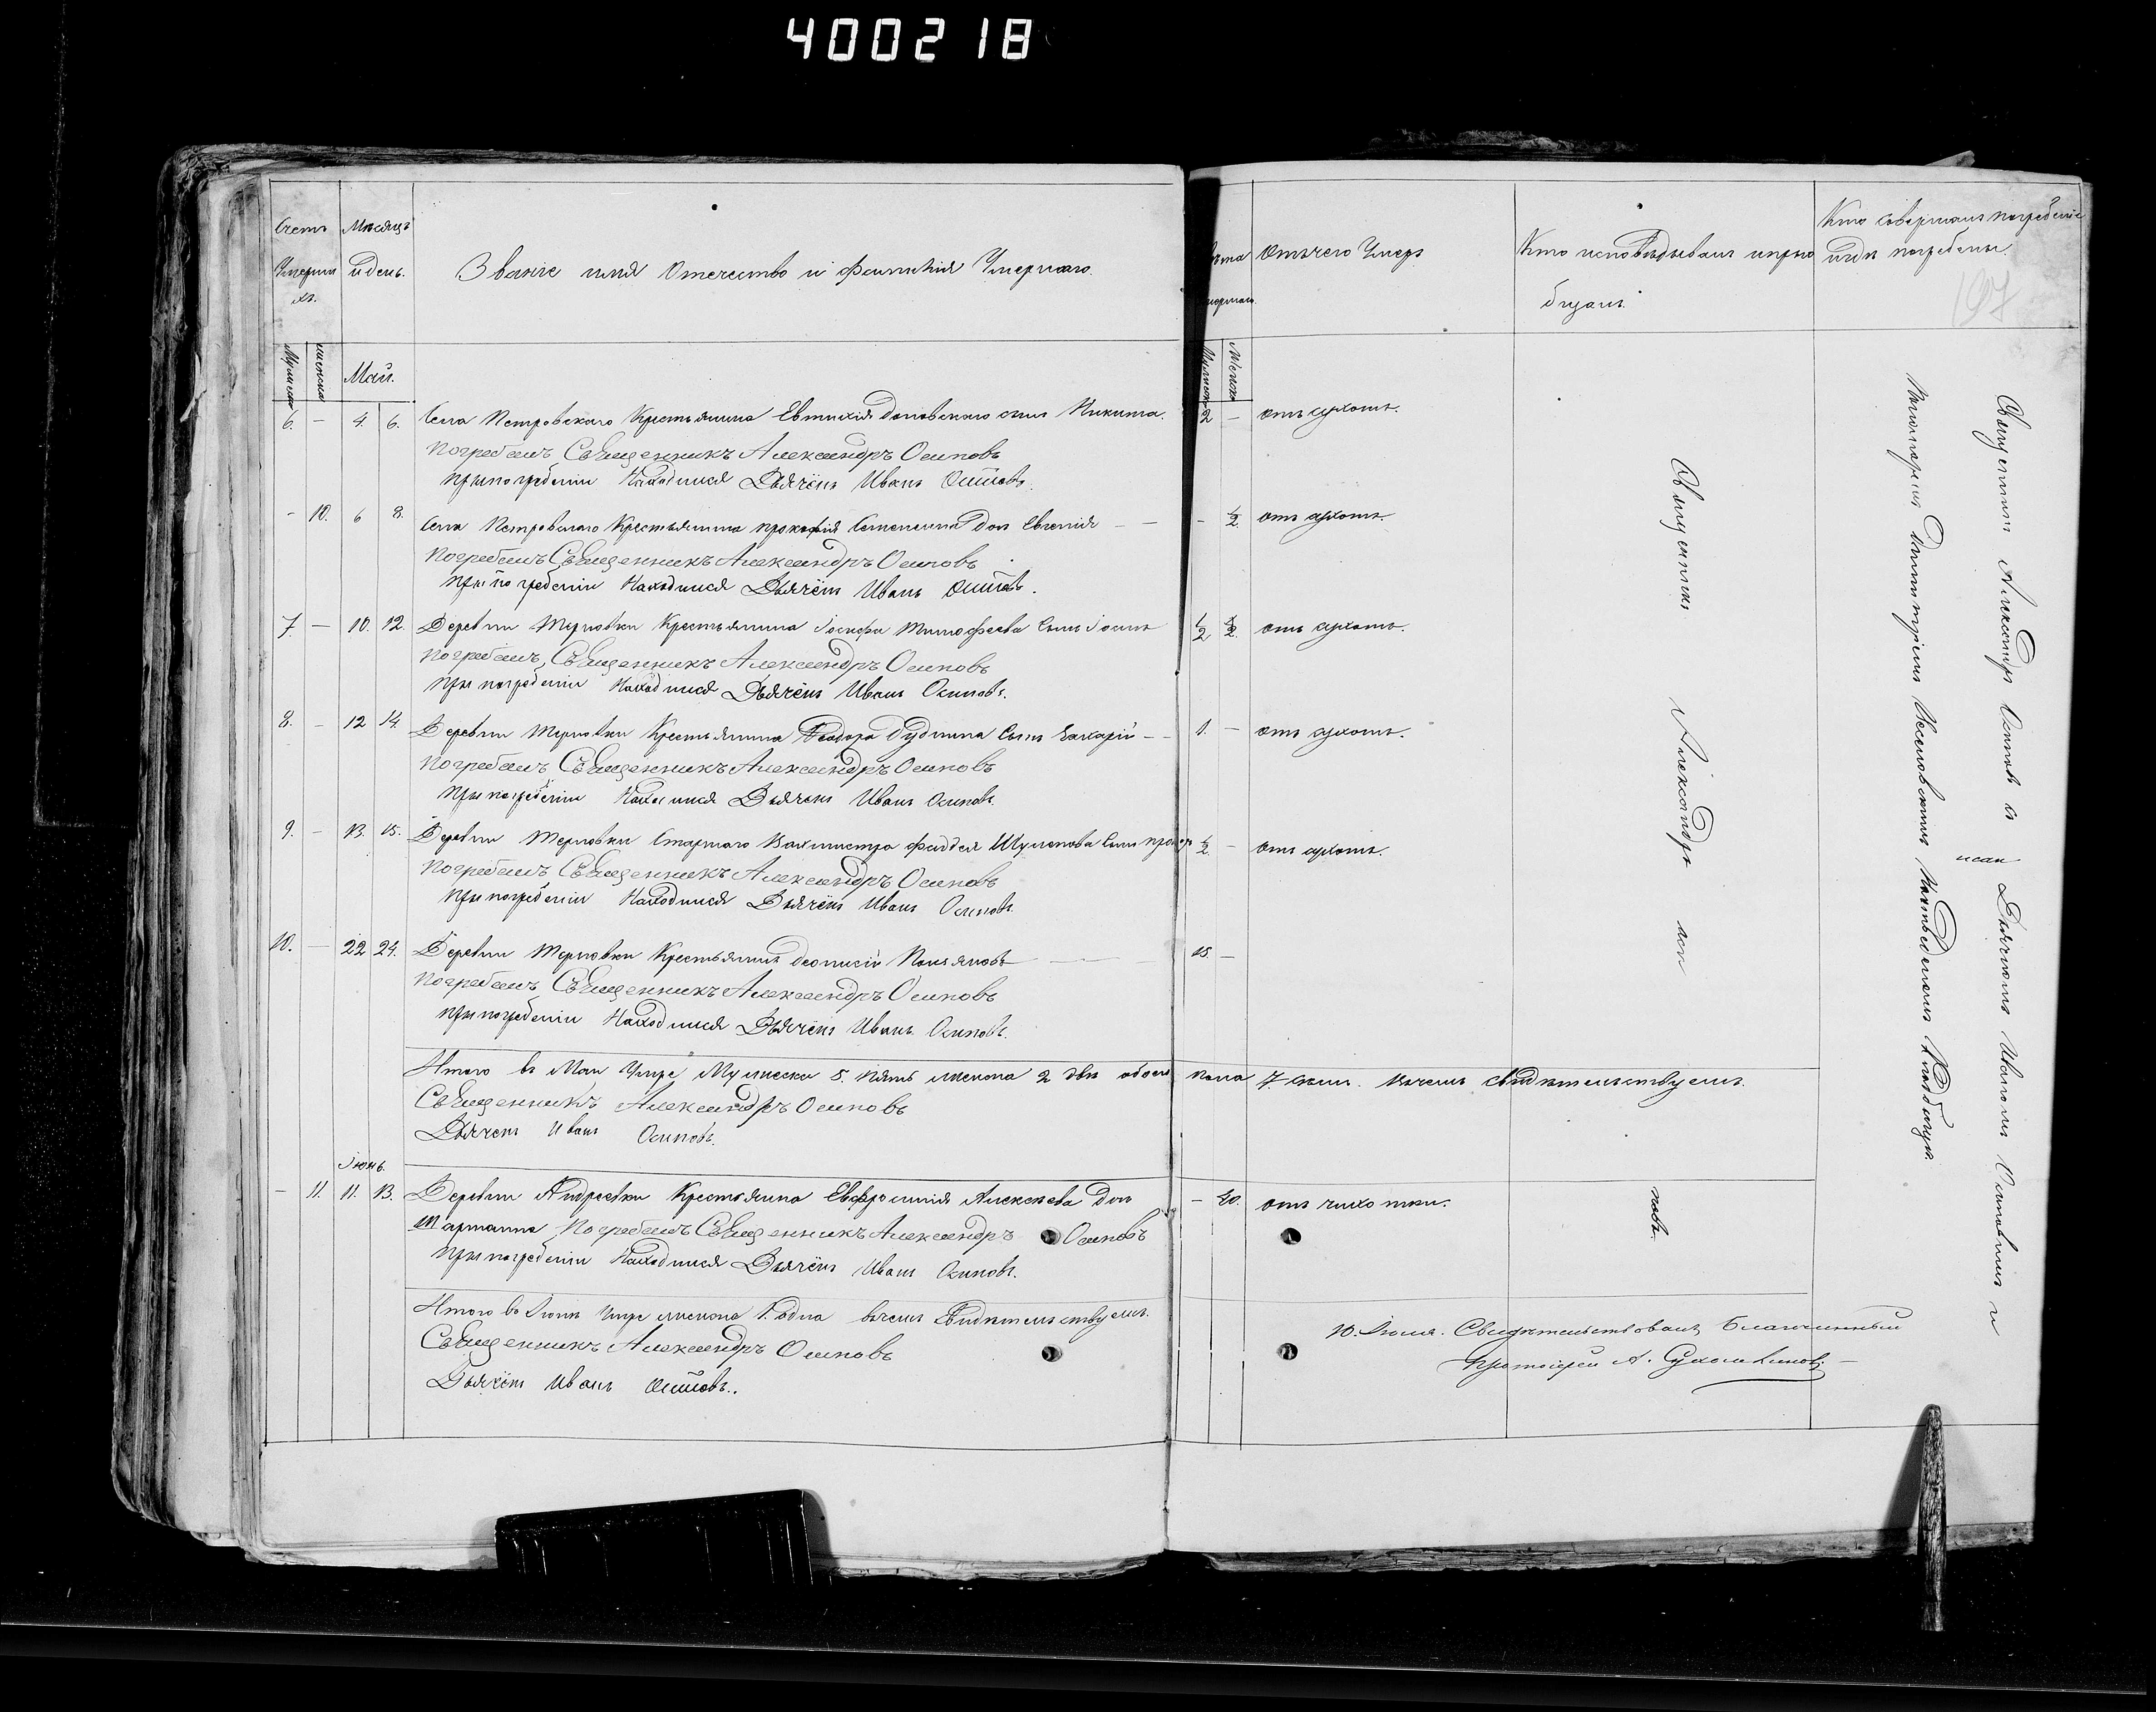 400218
Счетъ Умершихъ.
Мѣсяцъ и день.
Званіе имя Отечество и Фамилія Умершаго.
Лѣта Умершаго.
Отъ чего Умеръ
Кто исповѣдывалъ и пріобщалъ.
Кто совершалъ погребеніе и гдѣ погребены.
197
Мужеска
женска
Май.
Мужеск
Женск
6. — 4. 6. Села Петровскаго Крестьянина Евтихія сынъ Никита. 2 — отъ сухотъ.
Погребалъ Священникъ Александръ Осиповъ
При погребеніи Находился Дьячёкъ Иванъ Осиповъ.
- 10. 6 8. Села Петровскаго Крестьянина Прокофія Дол Евгенія — — - 1/2 отъ сухотъ.
Погребалъ Священникъ Александръ Осиповъ
При погребеніи Находился Дьячёкъ Иванъ Осиповъ.
7 — 10. 12. Деревни Терновки Крестьянина Іосифа Тимофеева Сынъ 1/2 отъ сухотъ.
Погребалъ Священникъ Александръ Осиповъ
При погребеніи Находился Дьячёкъ Иванъ Осиповъ.
8. — 12 14. Деревни Терновки Крестьянина Феодора Сынъ Захарій — 1. — отъ сухотъ.
Погребалъ Священникъ Александръ Осиповъ
При погребеніи Находился Дьячекъ Иванъ Осиповъ.
9. — 13. 15. Деревни Терновки Старшаго Вахмистра Фаддея Сынъ 1/2 — отъ сухотъ.
Погребалъ Священникъ Александръ Осиповъ
При погребеніи Находился Дьячёкъ Иванъ Осиповъ.
10. — 22 24. Деревни Терновки Крестьянинъ Деонисій 15. —
Погребалъ Священникъ Александръ Осиповъ
При погребеніи Находился Дьячёкъ Иванъ Осиповъ.
Итого въ Маи Умре Мужеска 5. пять женска 2 двѣ обоего пола 7 въ чемъ свидѣтельствуемъ.
Священникъ Александръ Осиповъ
Дьячекъ Иванъ Осиповъ.
Іюнь.
— 11. 11. 13. Деревни Андреевки Крестьянина Алексеева Дол — 20. отъ чихотки.
Погребалъ Священникъ Александръ Осиповъ
При погребеніи Находился Дьячёкъ Иванъ Осиповъ.
Итого въ Іюнѣ Умре женска 1. одна въ чемъ свидѣтельствуемъ.
Священникъ Александръ Осиповъ
Дьячёкъ Иванъ Осиповъ.
Священникъ Александръ Осиповъ
Священникъ Александръ Осиповъ съ Дьячкомъ Иваномъ Осиповымъ и
10. Іюля. Свидѣтельствовалъ Благочинный
Протоіерей А.